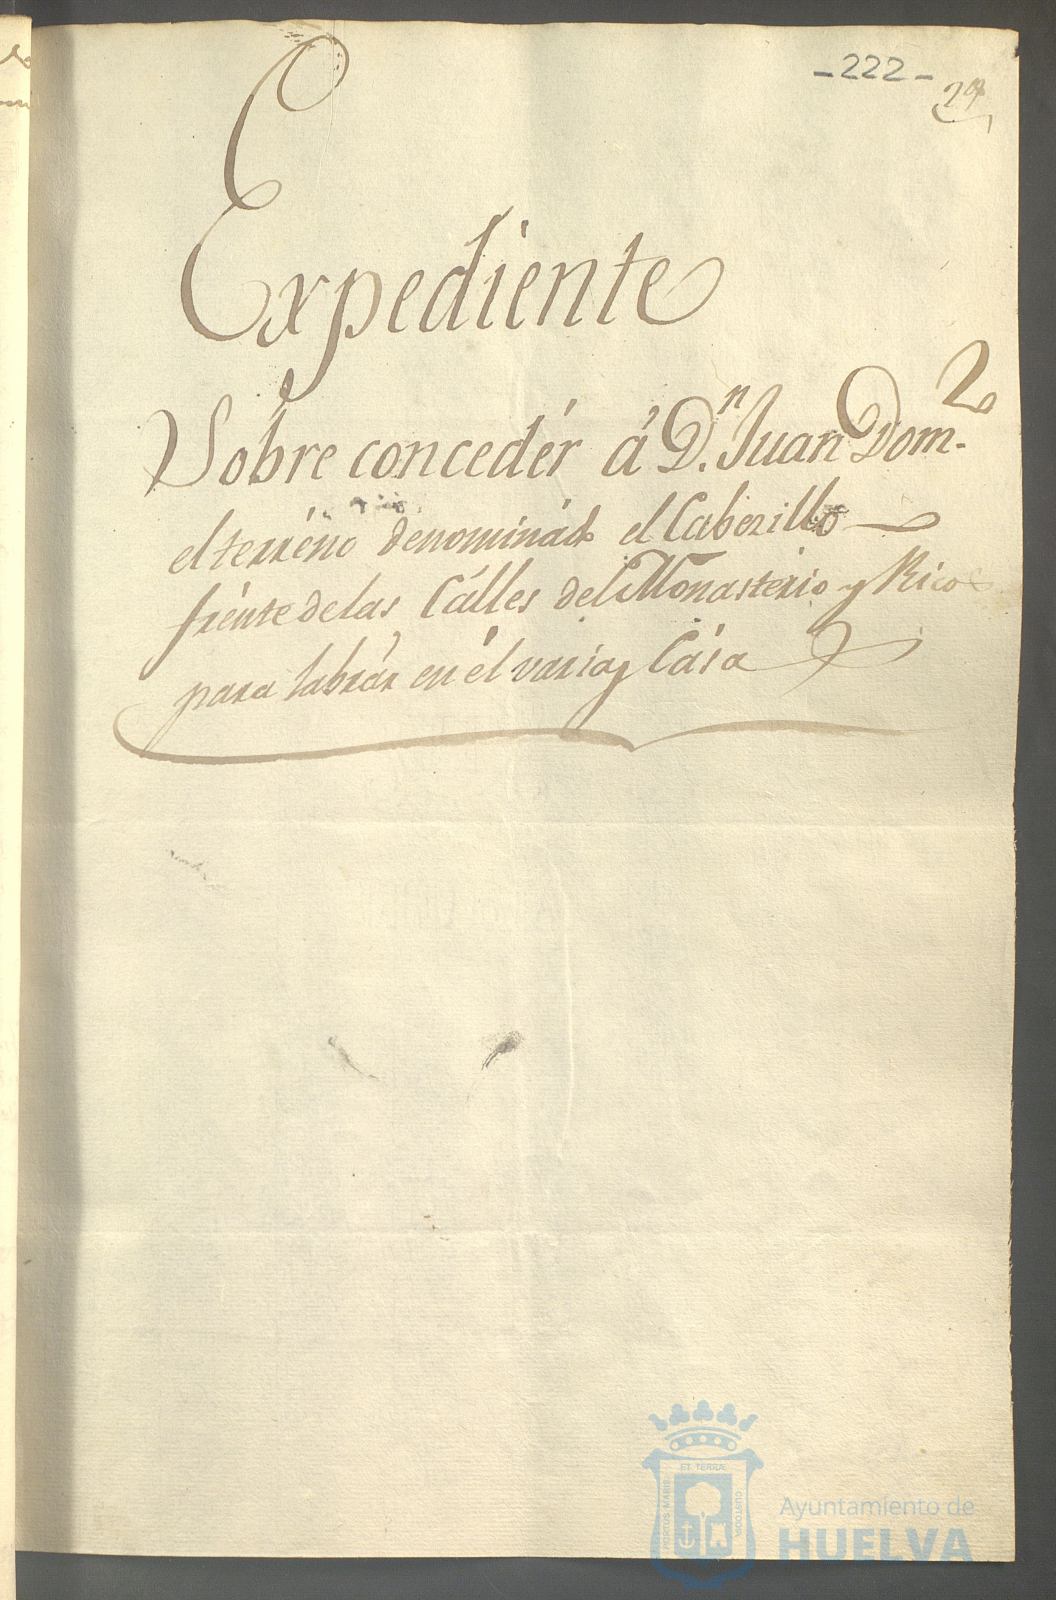 -222-
Expediente
Sobre concedér á D.n Juan Dom-z
el terréno denominádo el Cabezillo
frénte de las Cálles del Monasterio y Rico
para labrár en él varias Cása
PORTUS MARIS
ET TERRÆ
CUSTODIA
Ayuntamiento de
HUELVA